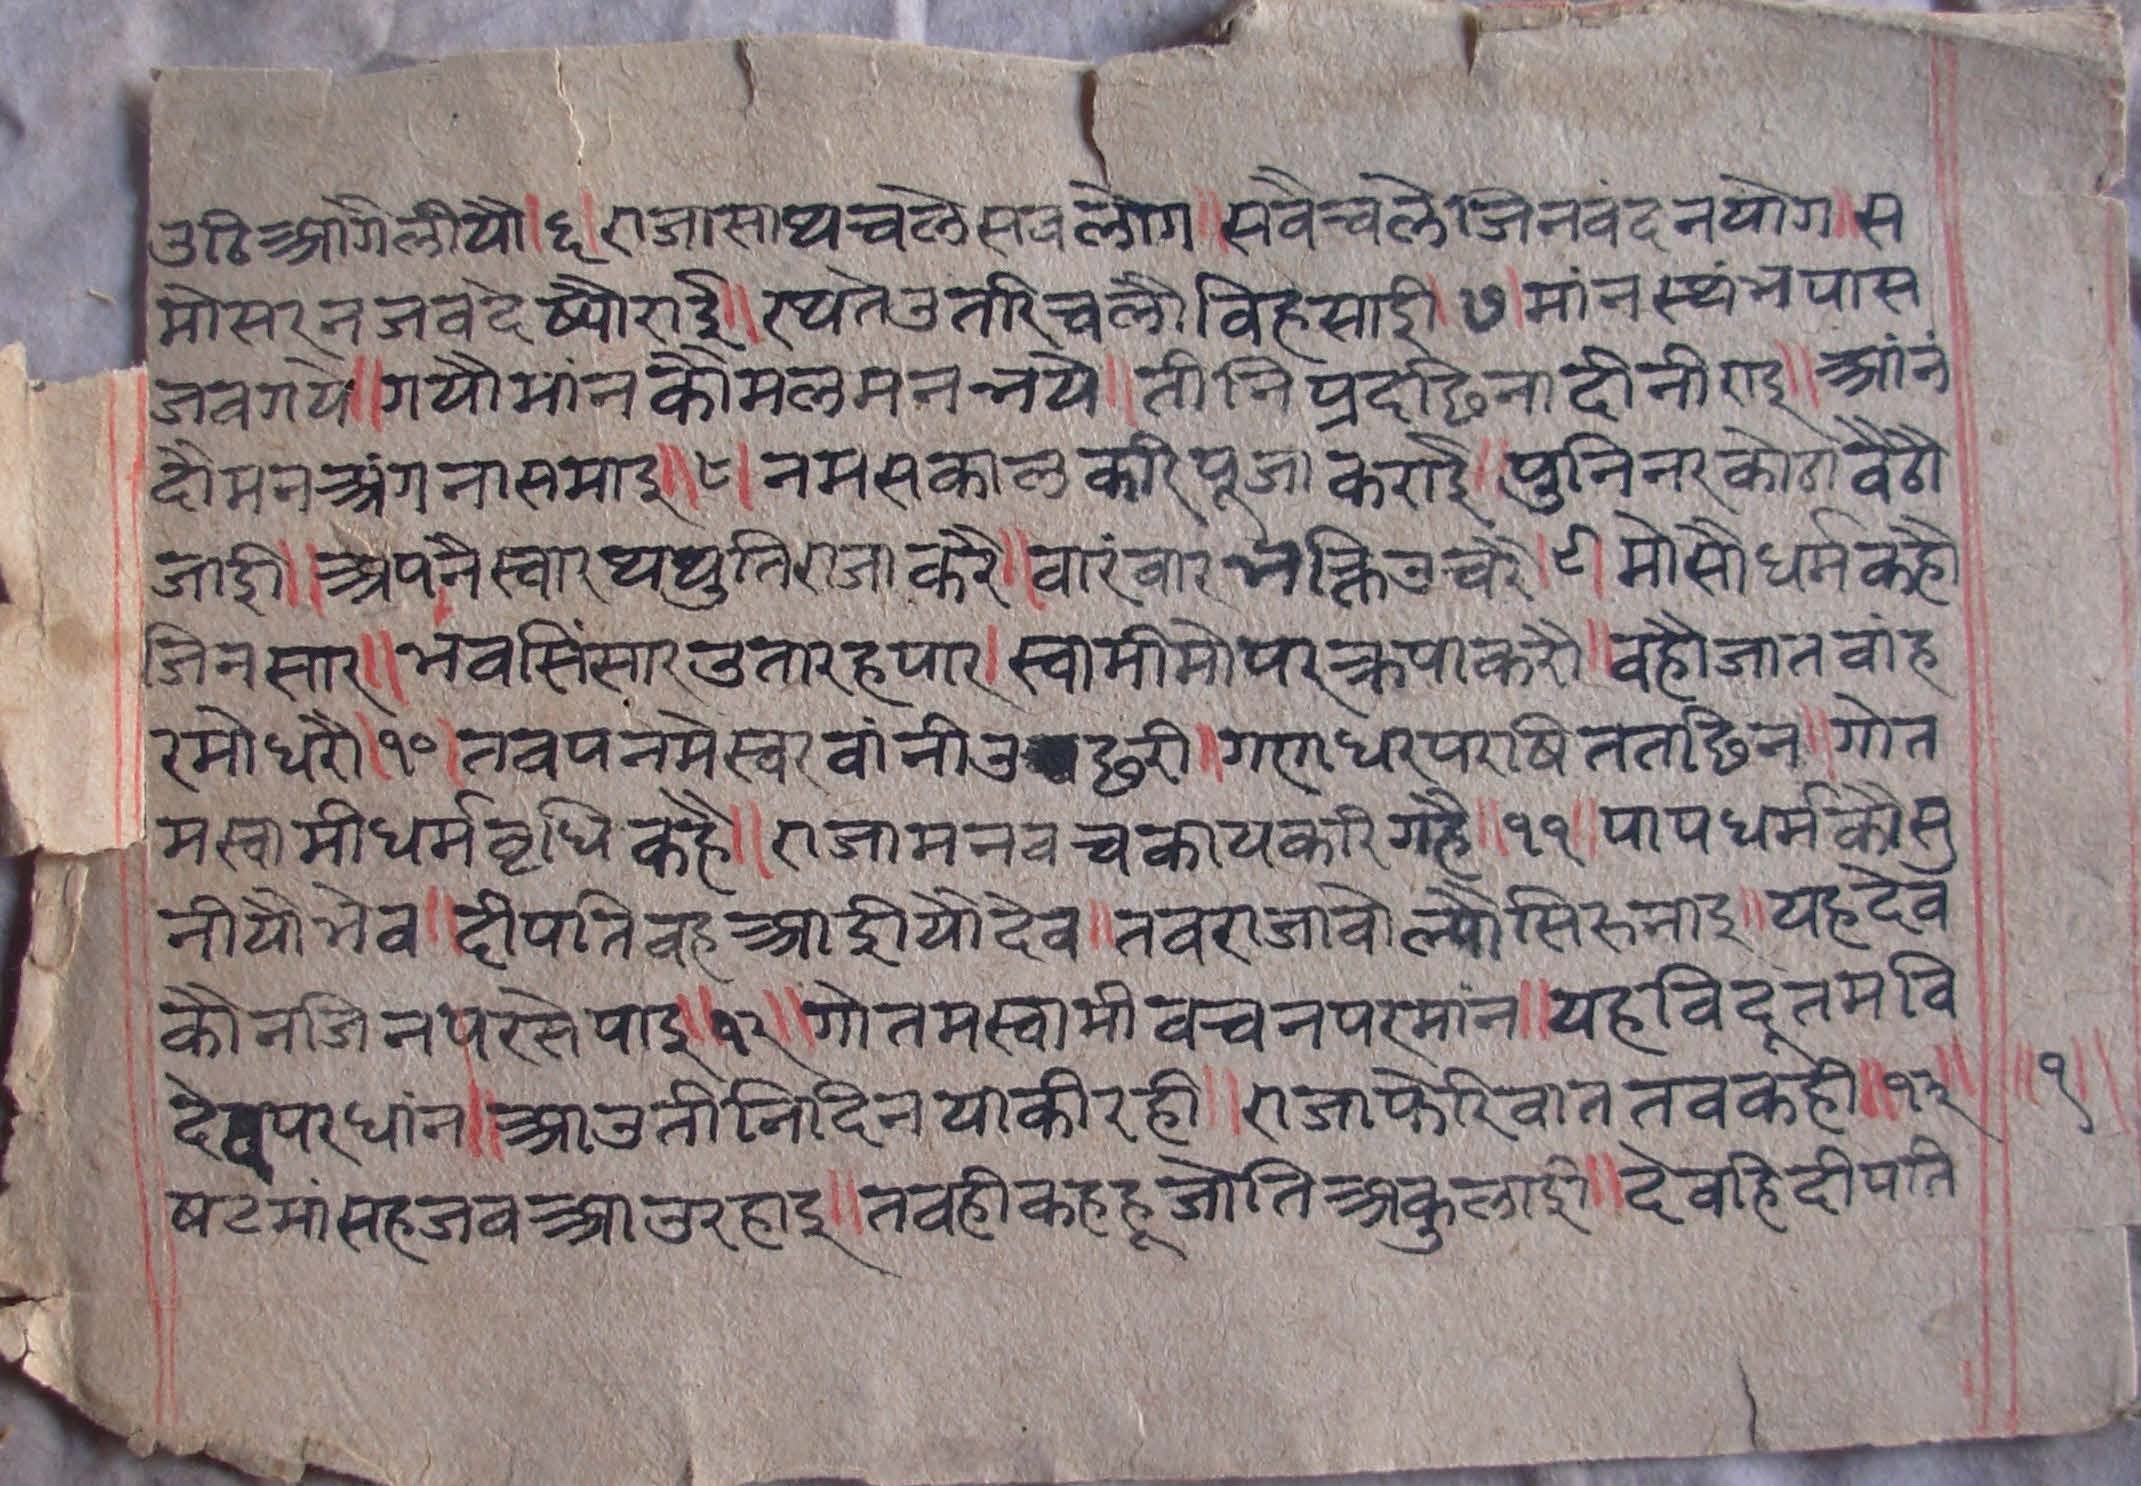 उठि आगैलीयौ।६।राजासाथचलेसवलोग॥सवैचलेजिनवंदनयोग॥स
मोसरनजवदेष्यौराई॥रथतेउतरिचलौविहसाई।७।मांनस्थंभपास
जवगये॥गयौमांनकौमलमनभये॥तीनिप्रदछिनादीनीराइ॥आंनं
दौमनअंगनासमाइ॥८।नमसकालकरिपूजाकराई॥पुनिनरकोठावैठौ
जाई॥अपनैस्वारथथुतिराजाकरै॥वारंवारभक्तिउचरै।९।मोसौधर्मकहौ
जिनसार॥भवसिंसारउतारहपार।स्वामीमोपरक्रपाकरौ॥वहौजातवांह
रमोधरौ।१०।तवपनमेस्वरवांनीउछरी॥गणधरपराषिततछिन॥गोत
मस्वामीधर्मवृधिकहै॥राजामनवचकायकरिगहै॥११॥पापधर्मकौसु
नीयौभेव॥दीपतिवहआईयौदेव॥तवराजावोल्यौसिरुनाइ॥यहदेव
कौनजिनपरसेपाइ॥१२॥गोतमस्वामीवचनपरमांन॥यहविदूतमवि
देवपरधांन॥आउतीनिदिनयाकीरही॥राजाफेरिवाततवकही॥१३॥ ॥१॥
षटमांसहजवआउरहाइ॥तवहीकहहूजोतिअकुलाई॥देवहिदीपति